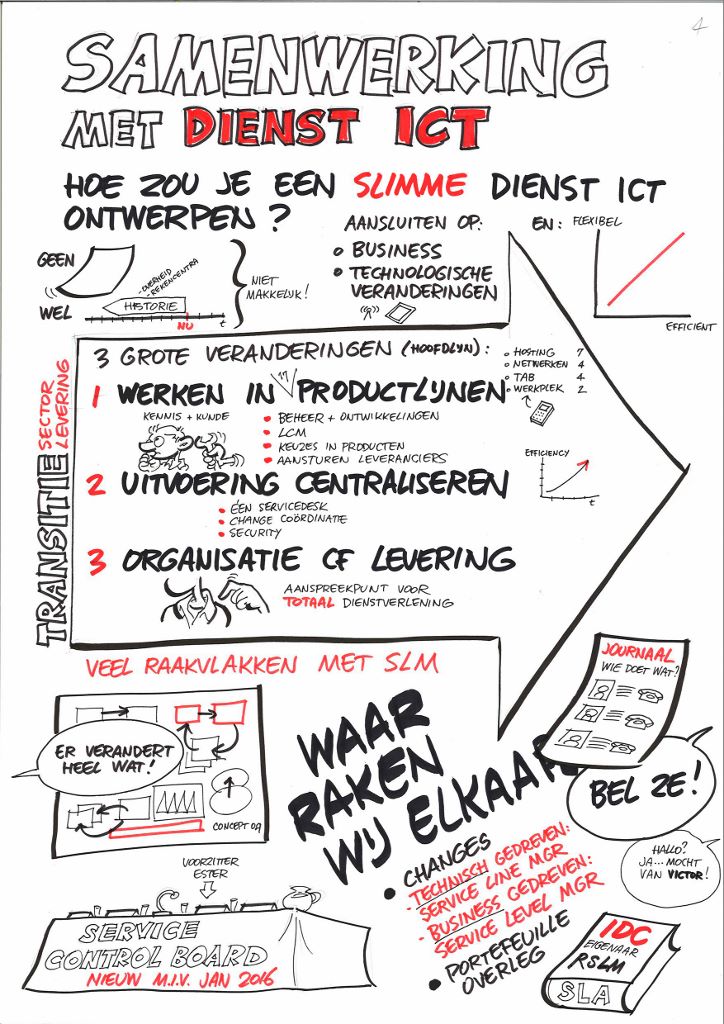 4
SAMENWERKING
MET DIENST ICT
HOE ZOU JE EEN SLIMME DIENST ICT
ONTWERPEN?
GEEN
WEL
-OVERHEID
-REKENCENTRA
HISTORIE
NU
t
NIET
MAKKELIJK!
AANSLUITEN OP:
• BUSINESS
• TECHNOLOGISCHE
VERANDERINGEN
EN:
FLEXIBEL
EFFICIENT
TRANSITIE SECTOR
LEVERING
3 GROTE VERANDERINGEN (HOOFDLIJN):
• HOSTING 7
• NETWERKEN 4
• TAB 4
• WERKPLEK 2
1 WERKEN IN 17 PRODUCTLIJNEN
KENNIS + KUNDE
• BEHEER + ONTWIKKELINGEN
• LCM
• KEUZES IN PRODUCTEN
• AANSTUREN LEVERANCIERS
EFFICIENCY
t
2 UITVOERING CENTRALISEREN
• ÉÉN SERVICEDESK
• CHANGE COÖRDINATIE
• SECURITY
3 ORGANISATIE CF LEVERING
AANSPREEKPUNT VOOR
TOTAAL DIENSTVERLENING
VEEL RAAKVLAKKEN MET SLM
ER VERANDERT
HEEL WAT!
CONCEPT 0.9
WAAR
RAKEN
WIJ ELKAAR
JOURNAAL
WIE DOET WAT?
BEL ZE!
HALLO?
JA... MOCHT
VAN VICTOR!
• CHANGES
- TECHNISCH GEDREVEN:
SERVICE LINE MGR
- BUSINESS GEDREVEN:
SERVICE LEVEL MGR
• PORTEFEUILLE
OVERLEG
VOORZITTER
ESTER
SERVICE
CONTROL BOARD
NIEUW M.I.V. JAN 2016
IDC
EIGENAAR
RSLM
SLA